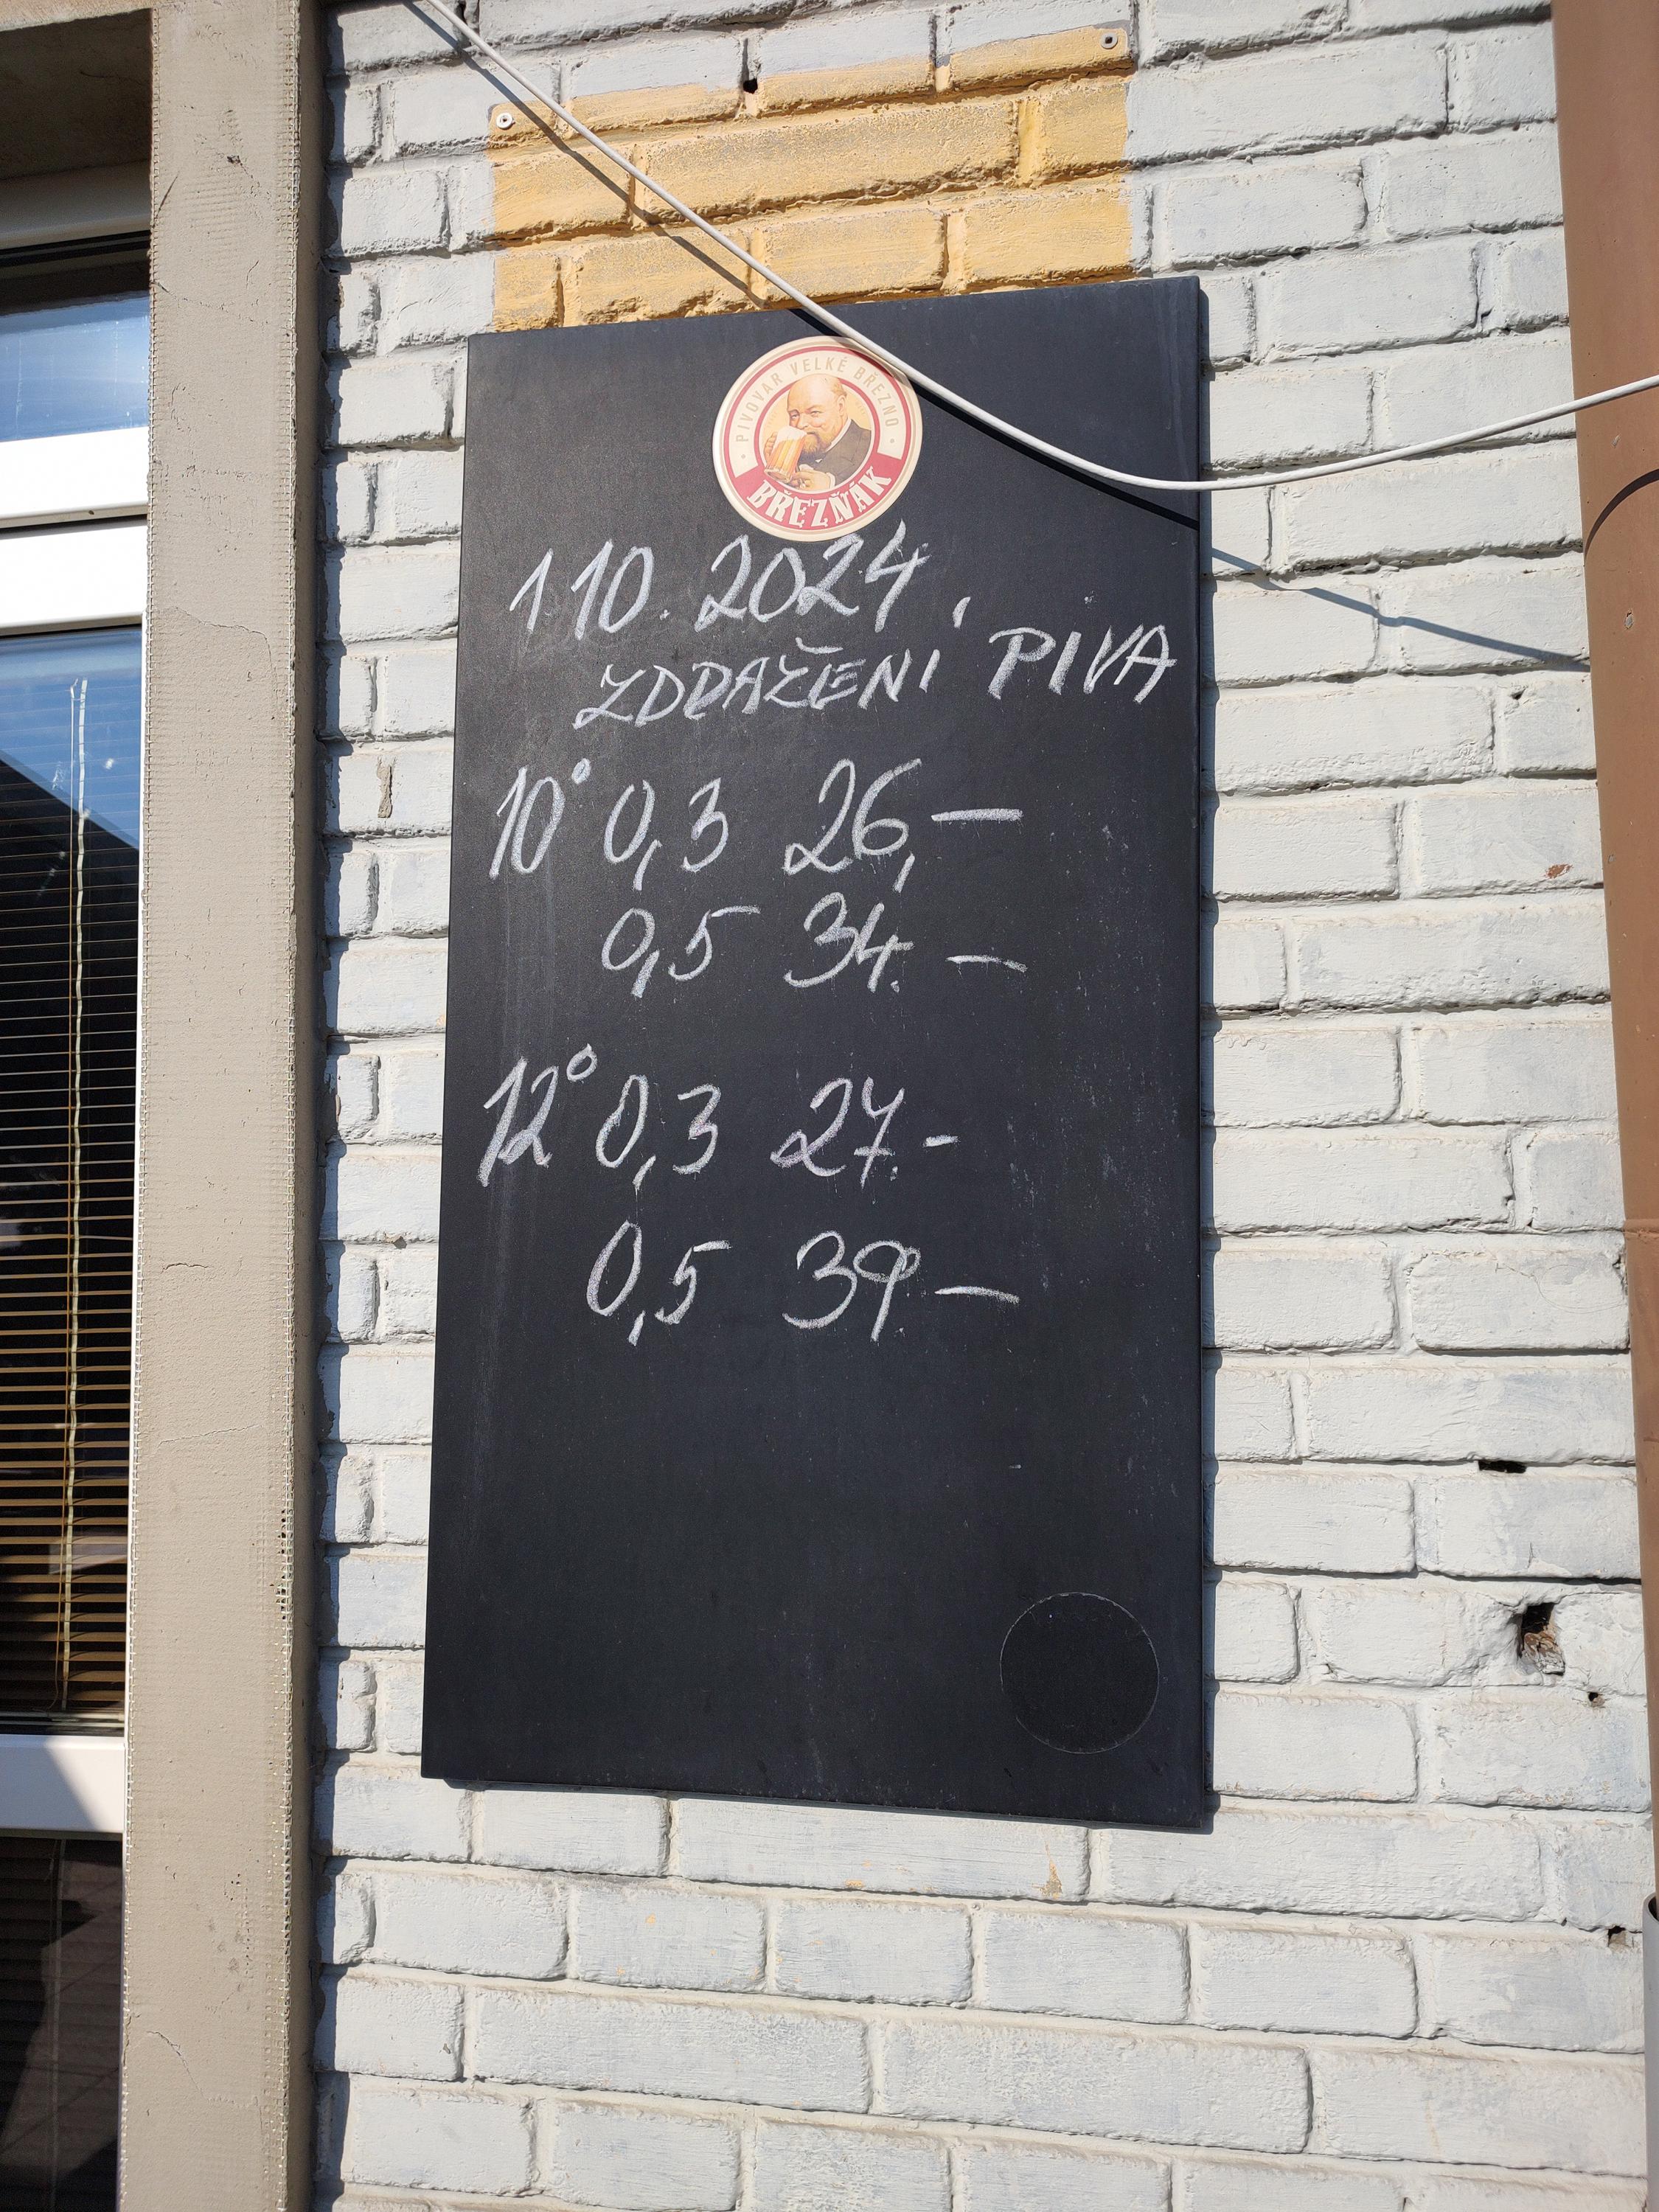 PIVOVAR VELKÉ BŘEZNO
BŘEZŇÁK
1.10.2024
ZDRAŽENÍ PIVA
10° 0,3 26,—
0,5 34.—
12° 0,3 27.-
0,5 39.—